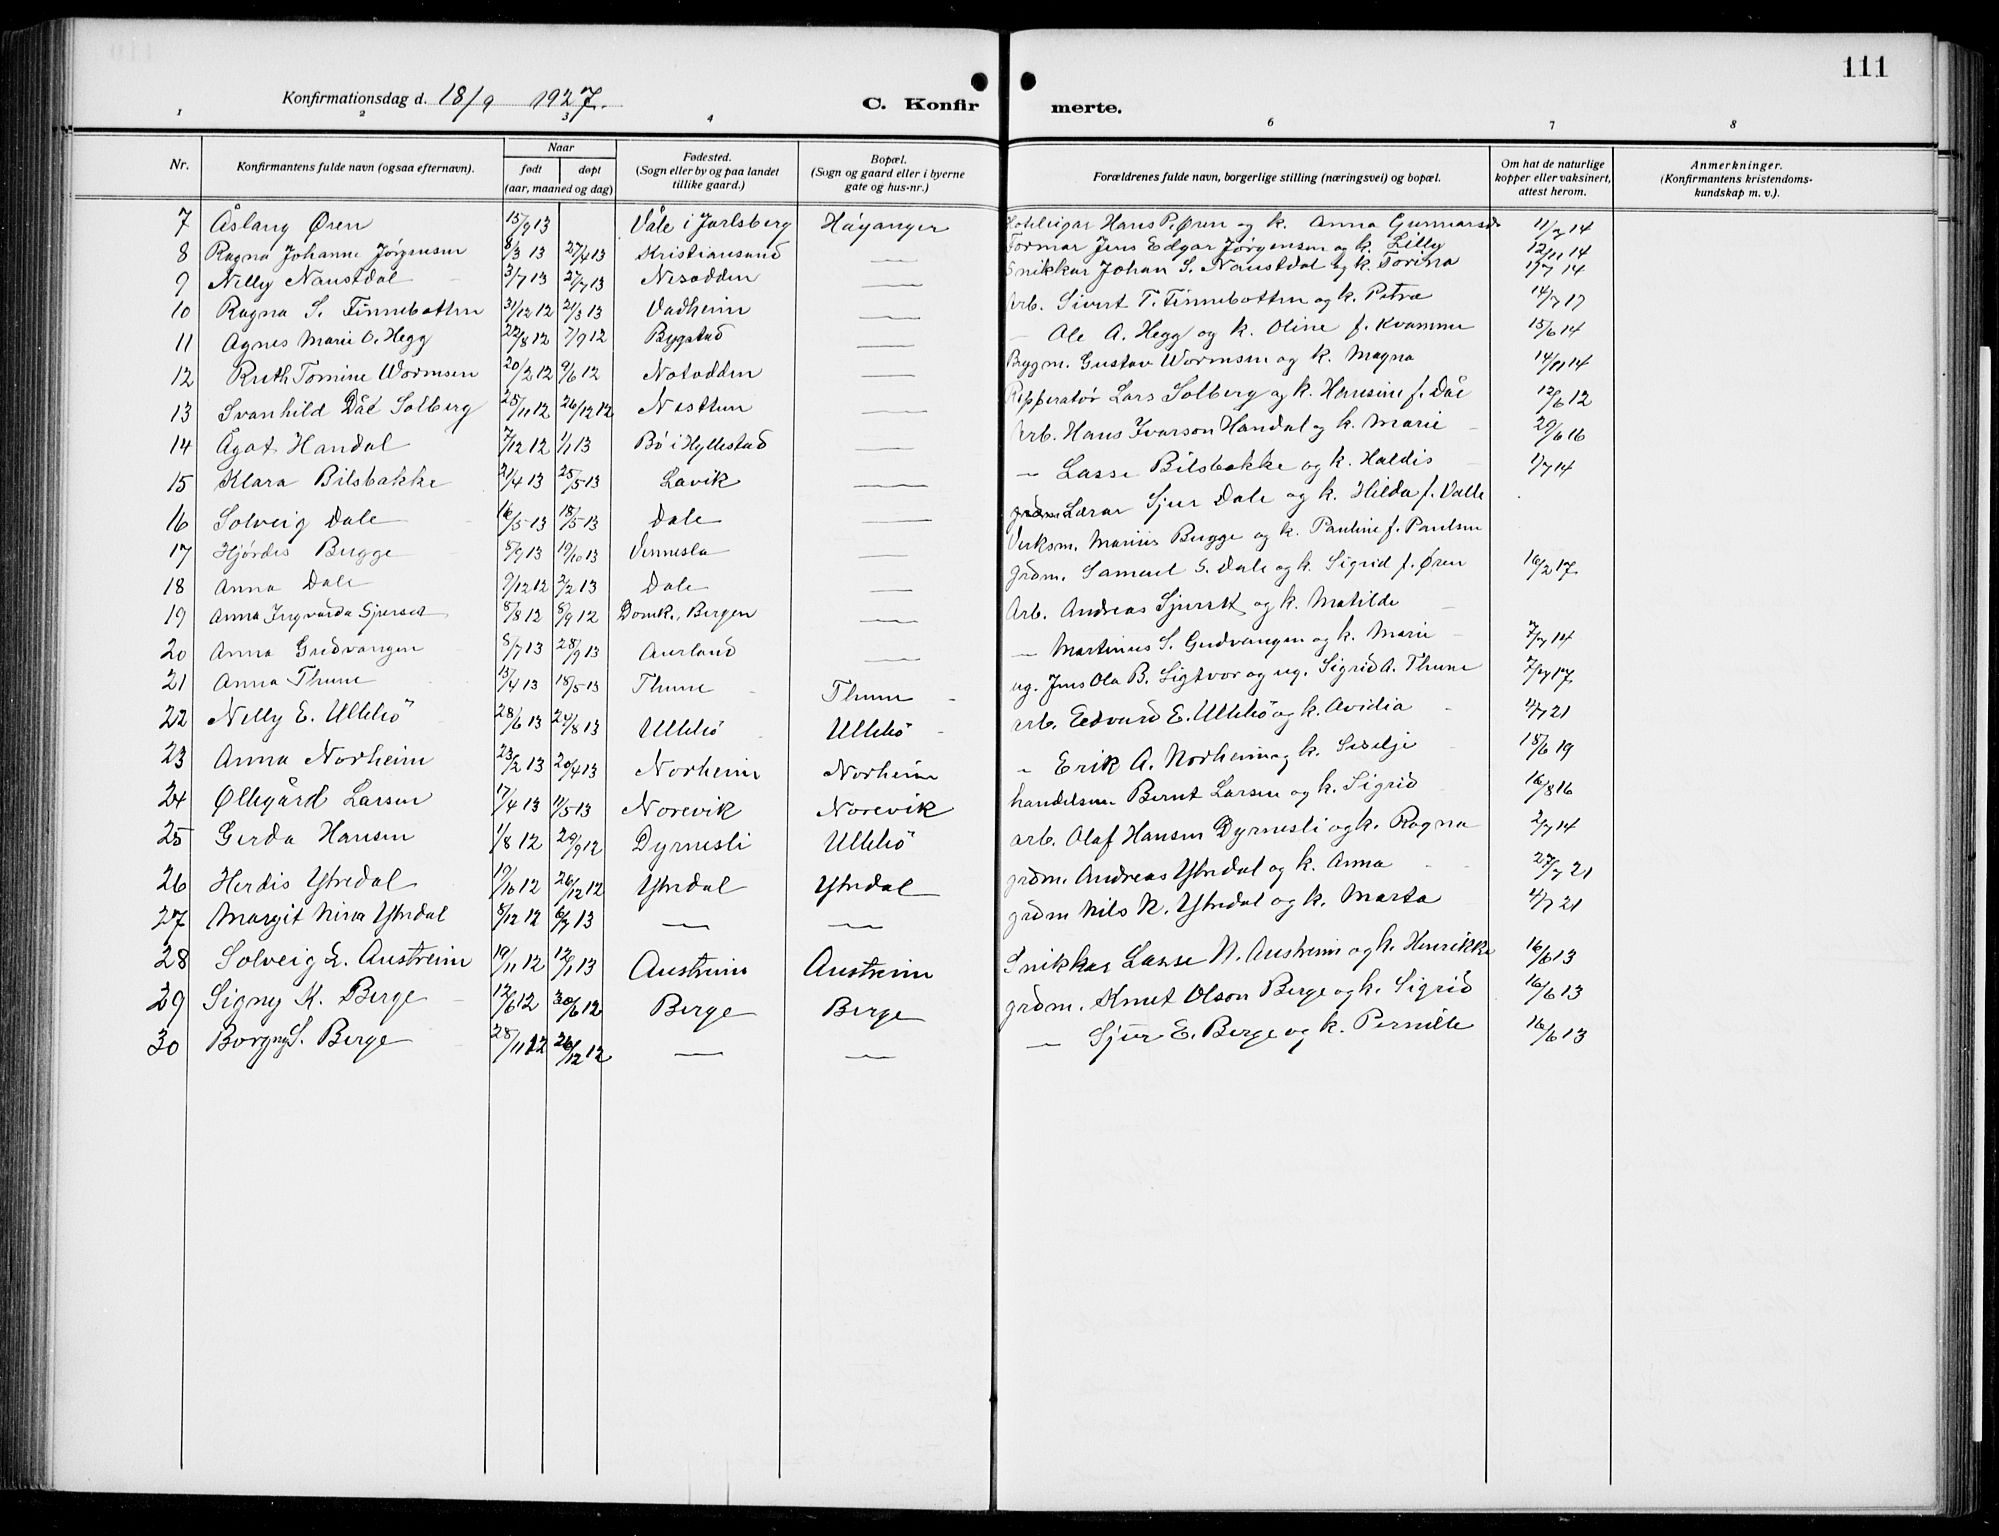 111
Konfirmationsdag d. 18/9 1927. C. Konfirmerte.
1 2 3 4 6 7 8
Nr. Konfirmantens fulde navn (ogsaa efternavn). Naar født døpt (aar, maaned og dag) Fødested. (Sogn eller by og paa landet tillike gaard.) Bopæl. (Sogn og gaard eller i byerne gate og hus-nr.) Forældrenes fulde navn, borgerlige stilling (næringsvei) og bopæl. Om hat de naturlige kopper eller vaksinert, attest herom. Anmerkninger. (Konfirmantens kristendomskundskap m. v.).
7 Åslaug Øren 15/9 13 Våle i Jarlsberg Høyanger Hoteleigar Hans P. Øren og k. Anna Gunnarsd. 11/7 14
8 Ragna Johanne Jørgensen 8/3 13 27/4 13 Kristiansund — Formar Jens Edgar Jørgensen og k. Lilly 12/11 14
9 Nelly Naustdal 3/7 13 27/7 13 Nesodden — Snikkar Johan S. Naustdal og k. Torina 14
10 Ragna S. Finnebotten 31/12 12 21/3 13 Vadheim — Arb. Sivert T. Finnebotten og k. Petra 14/7 17
11 Agnes Marie O. Hegg 22/8 12 7/9 12 Bygstad — – Ole A. Hegg og k. Oline f. Kvamme 15/6 14
12 Ruth Tomine Wormsen 20/2 12 9/6 12 Notodden — Bygm. Gustav Wormsen og k. Magna 14/11 14
13 Svanhild Dåe Solberg 25/11 12 26/12 12 Nesttun — Repperatør Lars Solberg og k. Hansine f. Dåe 12/6 12
14 Ågot Handal 7/12 12 1/1 13 Bø i Hyllestad — Arb. Hans Ivarson Handal og k. Marie 29/6 16
15 Klara Bilsbakke 21/4 13 25/5 13 Lavik — – Lasse Bilsbakke og k. Haldis 1/7 14
16 Solveig Dale 16/5 13 18/5 13 Dale — Lærar Sjur Dale og k. Hilda f. Valle
17 Hjørdis Bugge 8/9 13 19/10 13 Vennesla — Verksm. Marius Bugge og k. Pauline f. Paulsen
18 Anna Dale 9/12 12 2/2 13 Dale — grdm. Samuel S. Dale og k. Sigrid f. Øren 16/2 17.
19 Anna Ingvarda Sjurset 8/8 12 8/9 12 Domk., Bergen — Arb. Andreas Sjurset og k. Matilde
20 Anna Gudvangen 8/7 13 28/9 13 Aurland — – Martinus S. Gudvangen og k. Marie 7/7 14
21 Anna Thune 13/4 13 18/5 13 Thune Thune ug. Jens Ola B. Sigtvor og ug. Sigrid A. Thune 7/7 17.
22 Nelly E. Ullebø 28/6 13 24/8 13 Ullebø Ullebø arb. Edvard E. Ullebø og k. Avidia 4/7 21
23 Anna Norheim 23/2 13 20/4 13 Norheim Norheim " Erik A. Norheim og k. Siselje 18/6 19
24 Øllegård Larsen 17/4 13 11/5 13 Norevik Norevik handelsm. Bernt Larsen og k. Sigrid 16/8 16
25 Gerda Hansen 1/8 12 29/9 12 Dyrnesli Ullebø arb. Olaf Hansen Dyrnesli og k. Ragna 2/7 14
26 Herdis Ytredal 19/10 12 26/12 12 Ytredal Ytredal grdm. Andreas Ytredal og k. Anna 27/7 21
27 Margit Nina Ytredal 8/12 12 6/2 13 — — grdm Nils N. Ytredal og k. Marta 4/7 21
28 Solveig L. Austreim 19/11 12 12/1 13 Austreim Austreim Snikkar Lasse N. Austreim og k. Henrikke 16/6 13
29 Signy K. Berge 12/6 12 30/6 12 Berge Berge grdm. Knut Olson Berge og k. Sigrid 16/6 13
30 Borgny S. Berge 28/11 12 26/12 12 — — – Sjur E. Berge og k. Pernille 16/6 13